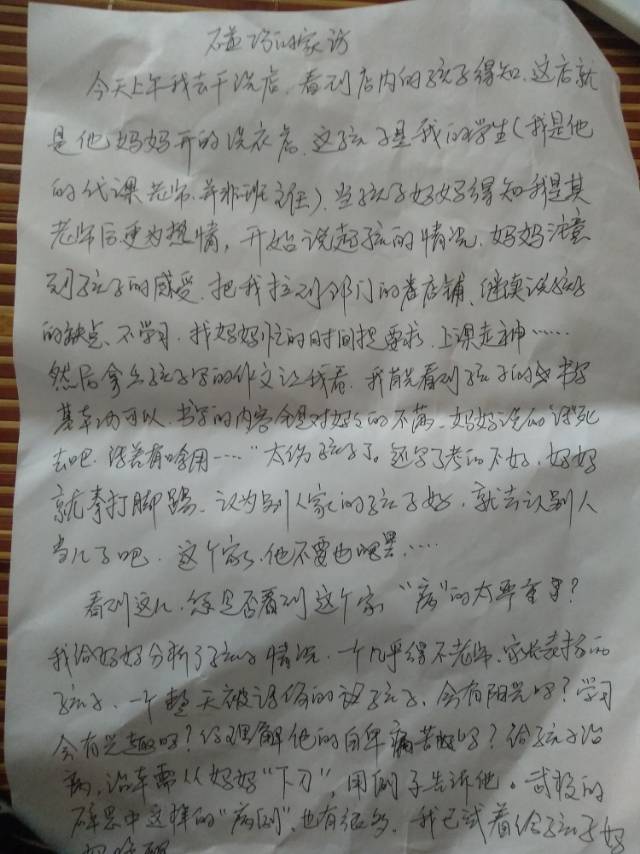 碰巧的家访
今天上午我去干洗店，看到店内的孩子得知，这店就
是他妈妈开的洗衣店。这孩子是我的学生（我是他
的代课老师，并非班主任）。当孩子妈妈得知我是其
老师后更为热情，开始说起孩子的情况，妈妈注意
到孩子的感受，把我拉到邻门的店铺，继续说孩子
的缺点、不学习，找妈妈忙的时间提要求，上课走神……
然后拿出孩子写的作文让我看，我首先看到孩子的书写
基本功可以，书写的内容全是对妈妈的不满，妈妈说的“该死
去吧，活着有啥用……”太伤孩子了。还写了考的不好，妈妈
就拳打脚踢，认为别人家的孩子好，就去认别人
当儿子吧，这个家，他不要也罢……
看到这儿，您是否看到这个家“病”的太严重了？
我给妈妈分析了孩子情况，一个几乎得不老师、家长表扬的
孩子，一个整天被说伤的话孩子，会有阳光吗？学习
会有兴趣吗？你理解他的自卑痛苦吗？给孩子治
病，治本需从妈妈“下刀”，用例子告诉他。
中这样的“病例”也有很多，我已试着给孩子妈